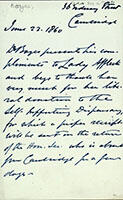 36 Sidney Street
Cambridge
June 22. 1860
presents his com-
pliments to Lady Affleck
and begs to thank her
very much for her lib-
eral donation to the
Self Supporting Dispensary,
for which a proper receipt
will be sent on the return
of the Hon. Sec. who is absent
from Cambridge for a few
days.